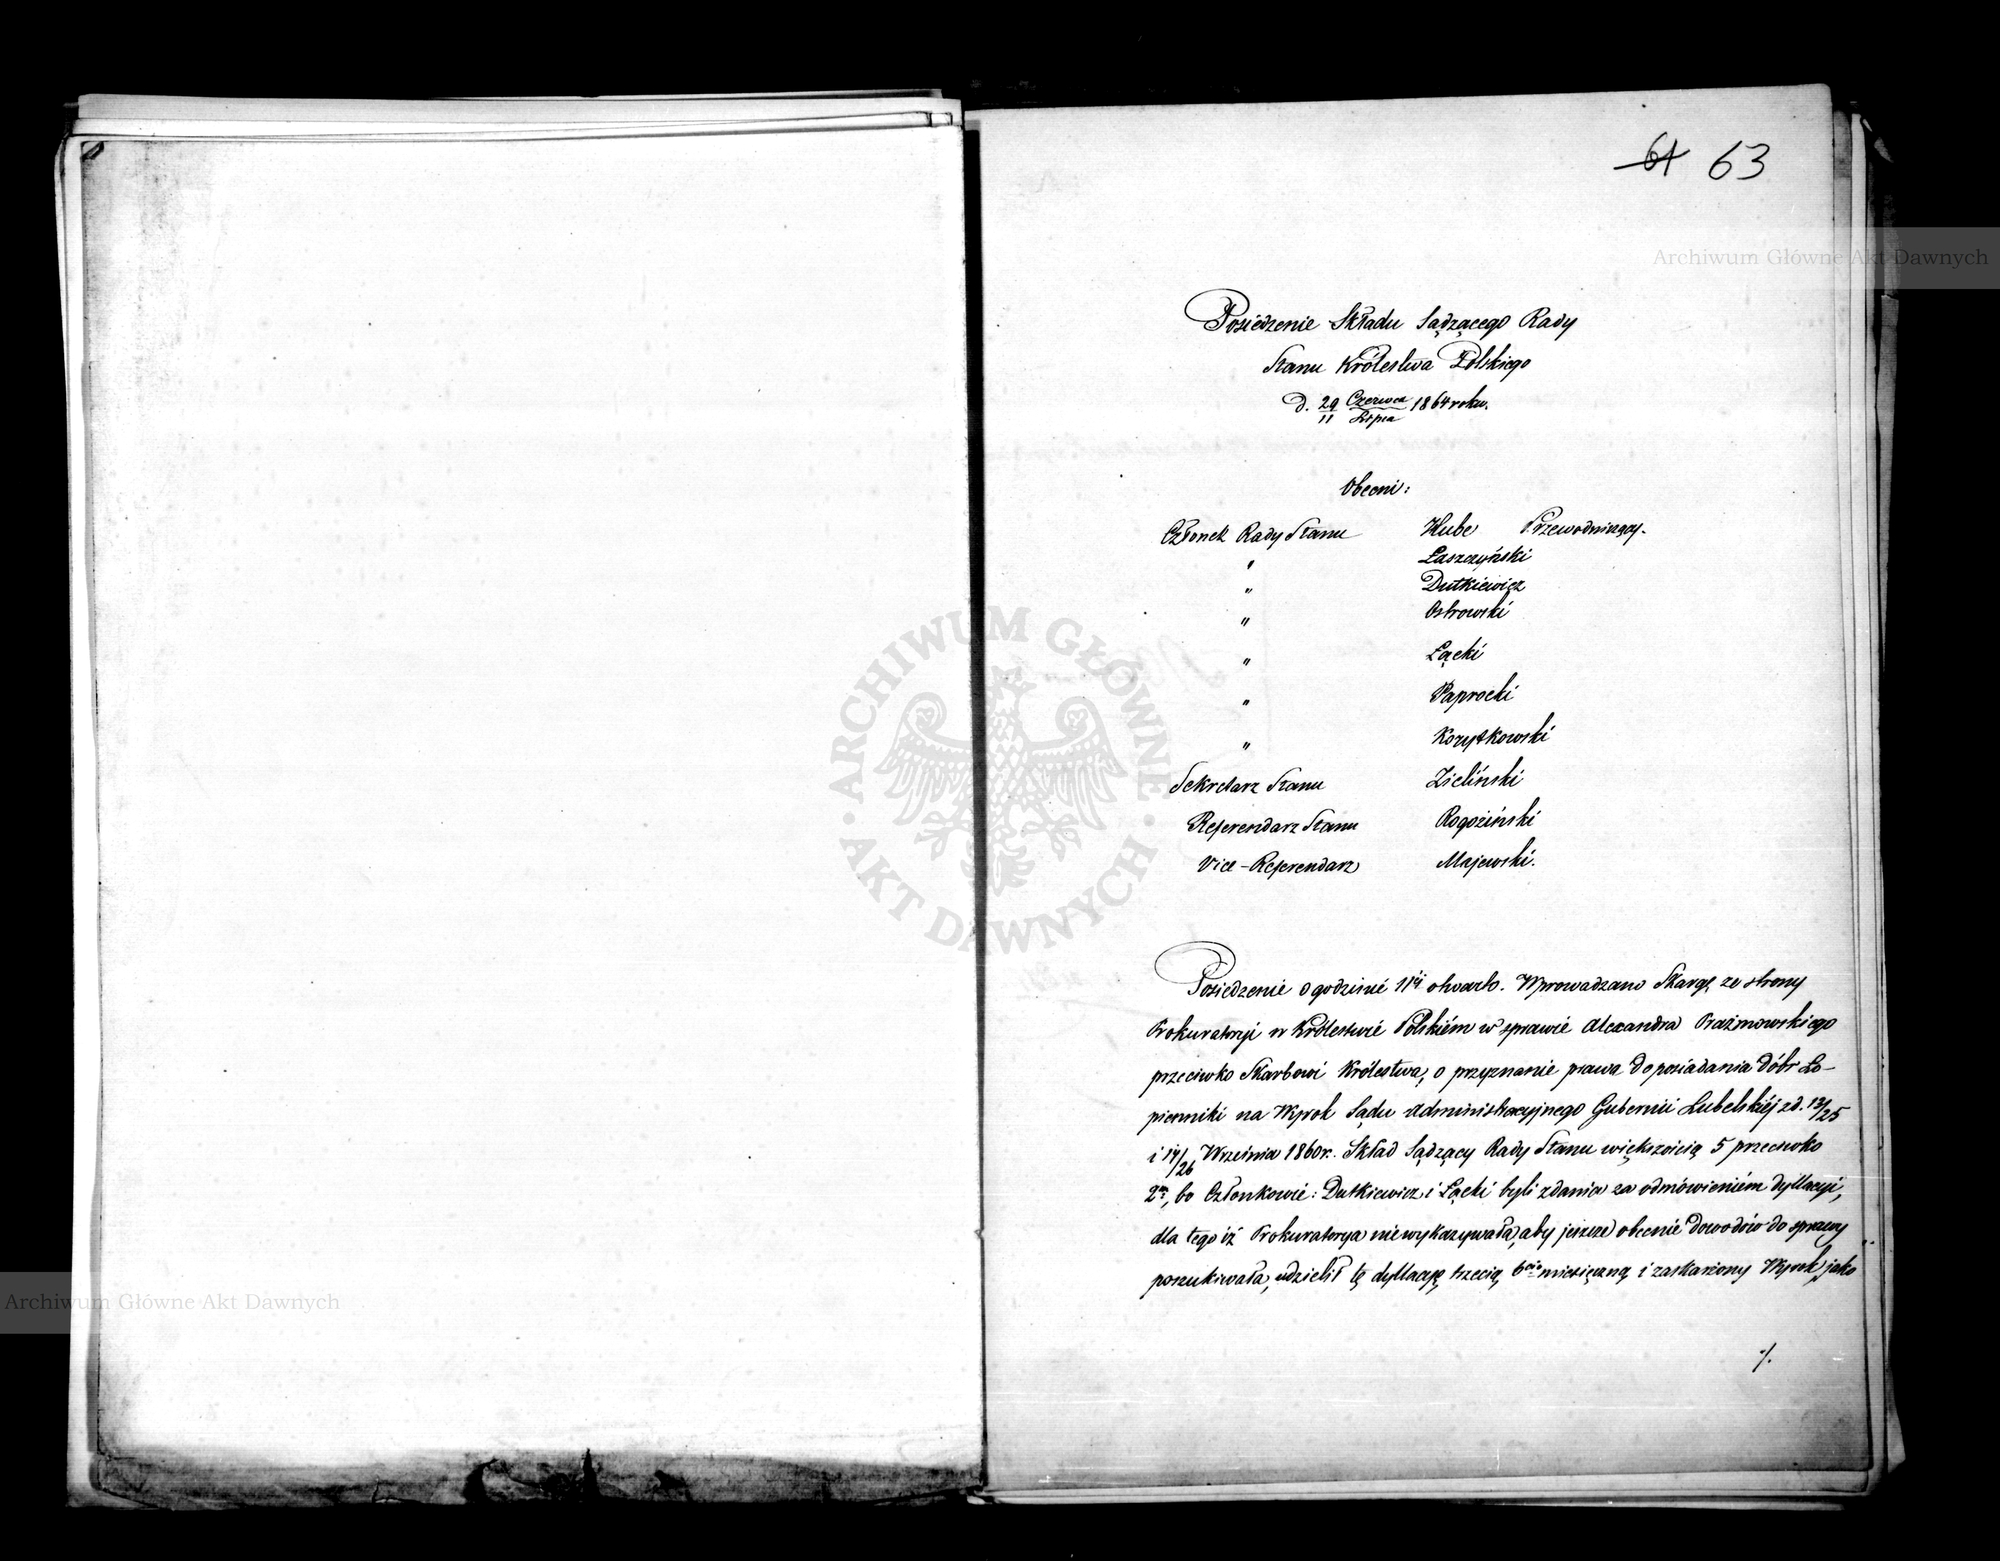 61 63
Posiedzenie Składu Sądzącego Rady
Stanu Królestwa Polskiego
d. 29/11 Czerwca/Lipca 1864 roku.
Obecni:
Członek Rady Stanu Hube Przewodniczący.
" Łaszczyński
" Dutkiewicz
" Ostrowski
" Łącki
" Paprocki
" Korytkowski
Sekretarz Stanu Zieliński
Referendarz Stanu Rogoziński
Vice-Referendarz Majewski.
Posiedzenie o godzinie 11éj otwarto. Wprowadzano Skargę ze strony
Prokuratoryi w Królestwie Polskiém w sprawie Alexandra Prażmowskiego
przeciwko Skarbowi Królestwa, o przyznanie prawa do posiadania dóbr Ło-
pienniki na Wyrok Sądu Administracyjnego Gubernii Lubelskiéj z d. 13/25
i 14/26 Września 1860 r. Skład Sądzący Rady Stanu większością 5 przeciwko
2m, bo Członkowie: Dutkiewicz i Łącki byli zdania za odmówieniem dyllacyi,
dla tego iż Prokuratorya nie wykazywała, aby jeszcze obecnie dowodów do sprawy
poszukiwała, udzielił tę dyllacyę trzecią 6cio miesięczną i zaskarżony Wyrok, jako
./.
Archiwum Główne Akt Dawnych
Archiwum Główne Akt Dawnych
ARCHIWUM GŁÓWNE AKT DAWNYCH